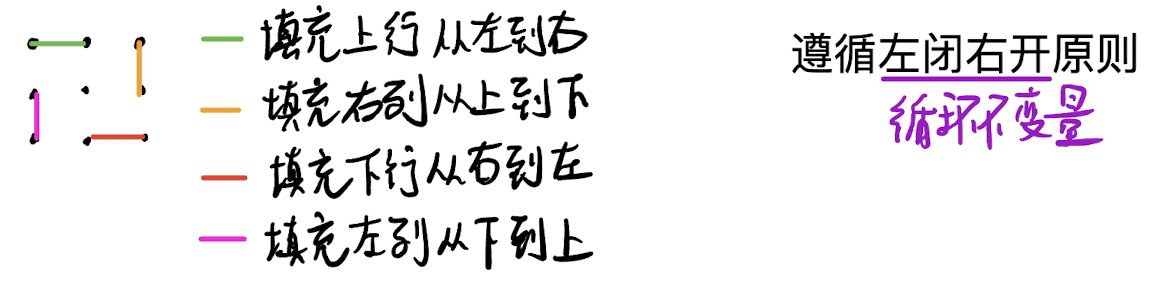 填充上行从左到右
填充右列从上到下
填充下行从右到左
填充左列从下到上
遵循左闭右开原则
循环不变量